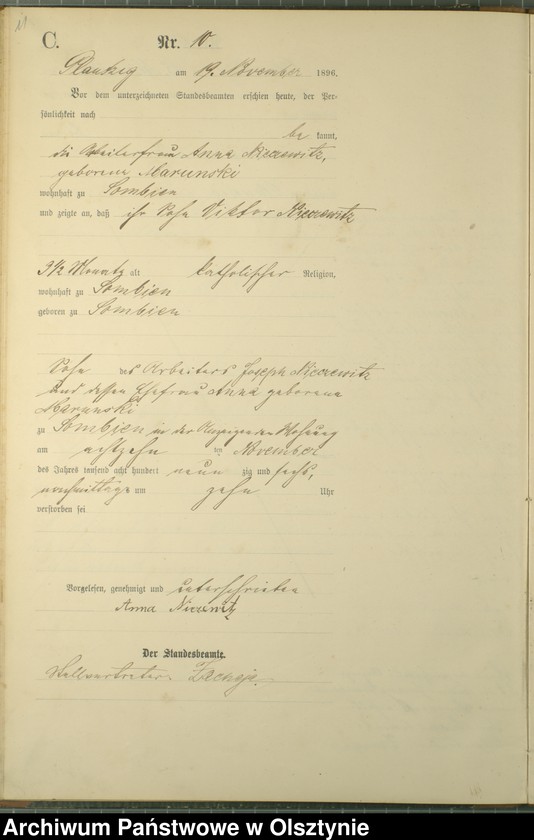 11
C.
Nr. 10.
Plautzig am 19. November 1896.
Vor dem unterzeichneten Standesbeamten erschien heute, der Per-
sönlichkeit nach
be kannt,
die Arbeiterfrau Anna
geborene Marunski
wohnhaft zu Sombien
und zeigte an, daß ihr Sohn Viktor
3½ Monate alt katholischer Religion,
wohnhaft zu Sombien
geboren zu Sombien
Sohn des Arbeiters Joseph
und dessen Ehefrau Anna geborene
Marunski
zu Sombien in der Wohnung
am achtzehn ten November
des Jahres tausend acht hundert neun zig und sechs,
nachmittags um zehn Uhr
verstorben sei
Vorgelesen, genehmigt und unterschrieben
Anna
Der Standesbeamte.
Stellvertreter
Archiwum Państwowe w Olsztynie